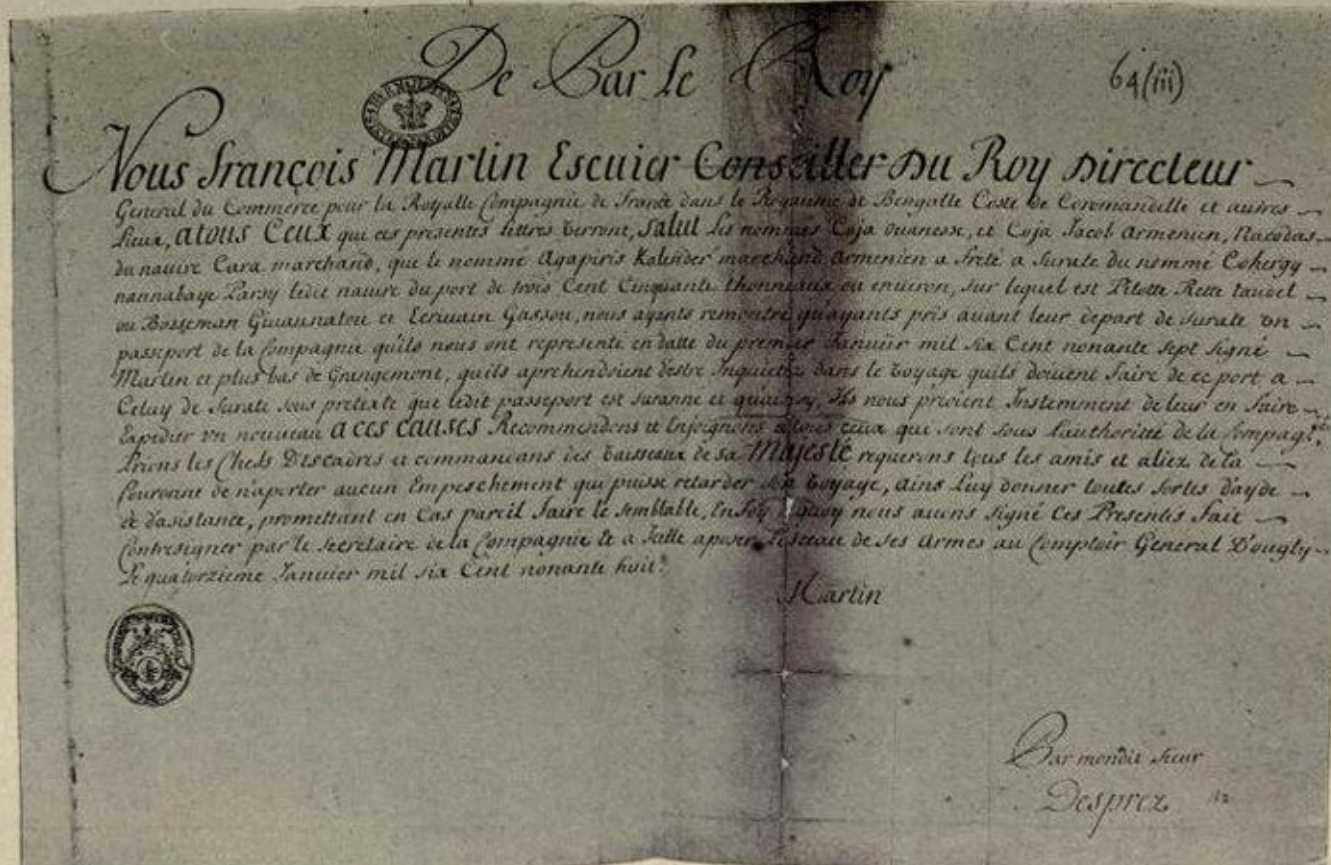 De Par Le Roy
64(iii)
Nous François Martin Escuier Conseiller Du Roy Directeur
General du Commerce pour la Royalle Compagnie de France dans le Royaume de Bengalle Coste de Coromandelle et autres
Lieux, atous Ceux qui ces presentes lettres verront, Salut Les nommés Coja ouanesse, et Coja Jacob Armenien, Nacodas
du navire Cara marchand, que le nommé Agapiris Kalender marchand Armenien a freté a Surate du nommé Cohergy
nannabaye Parsy ledit navire du port de trois Cent Cinquante thonneaux ou environ, sur lequel est Pilotte Rette tandel
ou Bosseman et Ecrivain Gassou, nous ayents remontré qu'ayants pris avant leur depart de Surate vn
passeport de la Compagnie quils nous ont representé en datte du premier Januier mil six Cent nonante sept signé
Martin et plus bas de Grangemont, quils aprehendoient destre Inquietez dans le voyage quils doivent faire de ce port a
Celuy de Surate sous pretexte que ledit passeport est suranné et Ils nous prioient Instemment de leur en faire
Expedier vn nouveau a ces causes Recommendons et Enjoignons a tous ceux qui sont sous l'authorité de la Compag.
Prions les Chefs Descadres et commandans des vaisseaux de sa Majesté requerons tous les amis et aliez de la
Couronne de n'aporter aucun Empeschement qui puisse retarder son voyage, ains Luy donner toutes sortes dayde
et dasistance, promettant en Cas pareil faire le semblable, En foy dequoy nous avons signé Ces Presentes fait
Contresigner par le secretaire de la Compagnie et a Jcelle aposer Le sceau de ses Armes au Comptoir General D'ougly
Le quatorzieme Januier mil six Cent nonante huit.
Martin
Par mondit sieur
Desprez